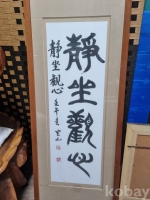 靜坐觀心
靜坐觀心
kobay